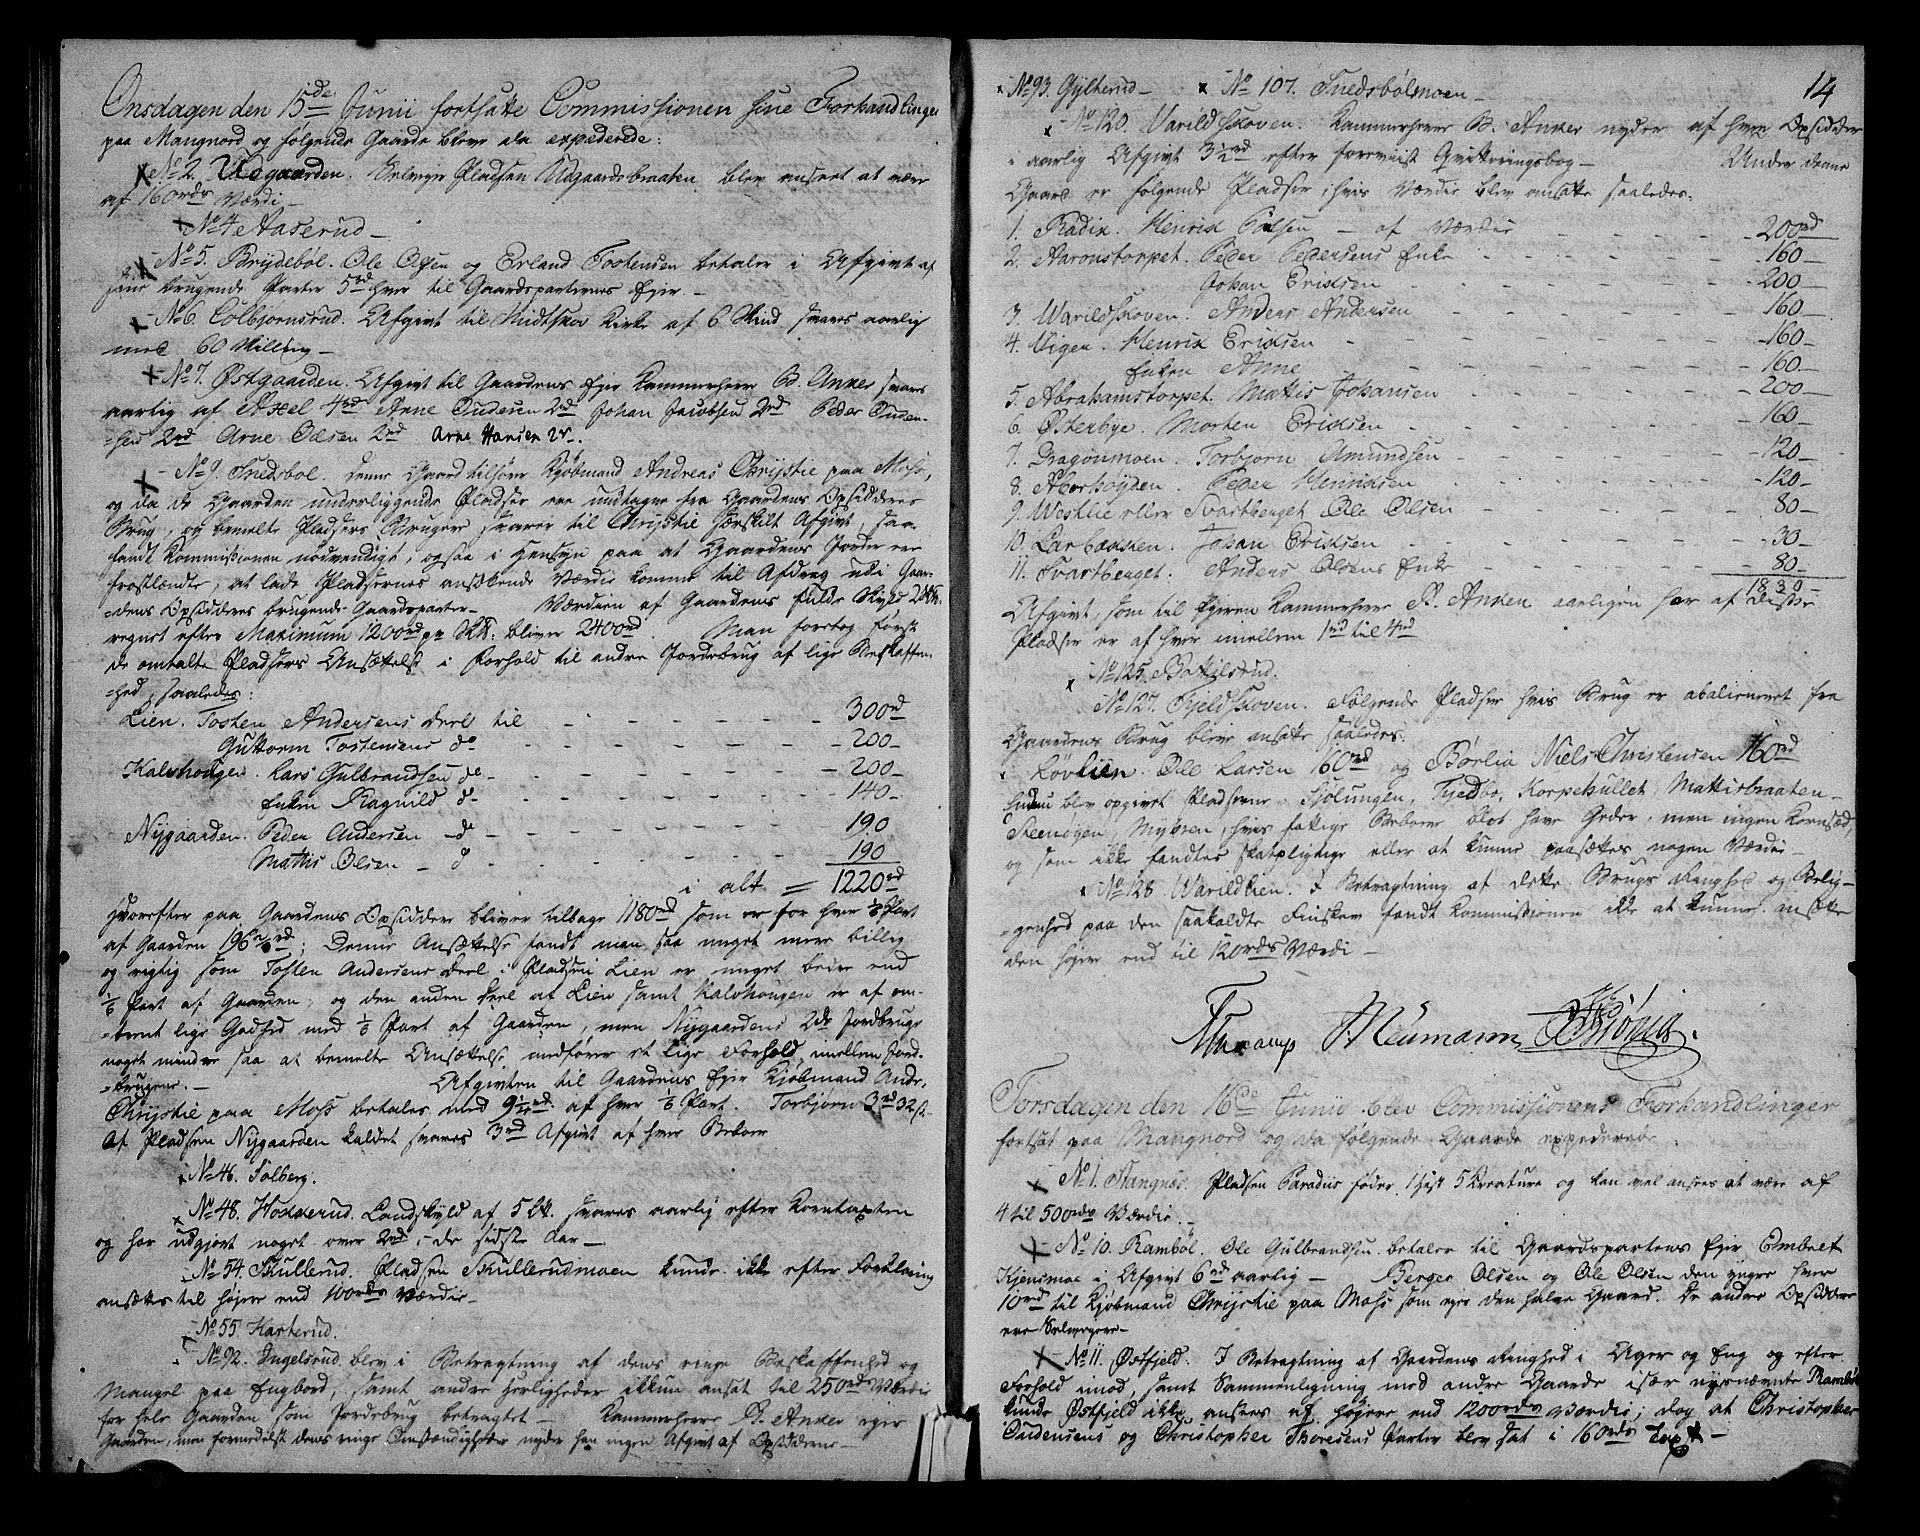 Onsdagen den 15de Junii fortsatte Commissionen sine Forhandlinger
paa Mangnord og følgende Gaarde bleve da expederede:
No 2. Udgaarden. Enkelte Pladsen Udgaardsbraaten blev anseet at være
af 160rds Værdi –
No 4 Aaserud –
No 5. Brydebøl. Ole Olsen og Erland Tostensen betaler i Afgivt af
sine brugende Parter 5rd hver til Gaardspartiernes Ejer. –
No 6. Colbjørnsrud. Afgivt til Midtskov Kirke af 6 Skind svares aarlig
med 60 Skilling –
No 7. Østgaarden. Afgivt til Gaardens Ejer Kammerherre B. Anker svares
aarlig af Axel 4rd Arne Gudesen 2rd Johan Jacobsen 2rd Peder Guden-
=sen 2rd Arne Olsen 2rd Arne Hansen 2r –
– No 9. Tredsbøl. Denne Gaard tilhører Kjøbmand Andreas Chrystie paa Moss,
og da de Gaarden underliggende Pladser ere undtagne fra Gaardens Opsidderes
Brug, og bemelte Pladsers Brugere svarer til Chrystie særskilt Afgivt, saa
fandt Kommissionen nødvendigt, ogsaa i Hensyn paa at Gaardens Jorder ere
frostlændte, at lade Pladsernes ansættende Værdie komme til Afdrag udi Gaar-
=dens Opsidderes brugende Gaardsparter – Værdien af Gaardens fulde Skyld 2
regnet efter Maximum 1200rd pr bliver 2400rd. Man foretog først
de omtalte Pladsers Ansættelse i Forhold til andre Jordebrug af lige Beskaffen-
=hed, saaledes:
Lien. Tosten Andersens Deel til – – – – – 300rd
Guttorm Tostensens do – – – – – 200 –
Kalvhougen. Lars Gulbrandsen do – – – – – 200 –
Enken Ragnild do – – – – – 140 –
Nygaarden. Peder Andersen – do – – – – – 190
Mathis Olsen – do – – – – – 190
i alt = 1220rd
Hvorefter paa Gaardens Opsiddere bliver tilbage 1180rd som er for hver 1/6 Part
af Gaarden 196 2/3 rd; Denne Ansættelse fandt man saa meget mere billig
og rigtig som Tosten Andersens Deel i Pladsen Lien er meget bedre end
1/6 Part af Gaarden, og den anden Deel af Lien samt Kalvhougen er af om-
=trent lige Godhed med 1/6 Part af Gaarden, men Nygaardens 2de Jordbruge
noget mindre saa at bemelte Ansættelse indfører et lige Forhold imellem Jord-
=brugene. – Afgivten til Gaardens Ejer Kjøbmand Andr.
Chrystie paa Moss betales med 9 rd af hver 1/6 Part. Torbjørn 3rd 32s –
Af Pladsen Nygaarden kaldet svares 3rd Afgivt af hver Beboer
No 46. Solberg.
No 48. Hokkerud. Landskyld af 5 svares aarlig efter Korntaxten
og har udgjort noget over 2rd i de sidste Aar –
No 54. Skullerud. Pladsen Skullerudmoen kunde ikke efter Forklaring
ansættes til højere end 100rds Værdie –
No 55. Harterud.
No 92. Ingelsrud. blev i Betragtning af dens ringe Beskaffenhed og
Mangel paa Engbord, samt andre Herligheder ikkun ansat til 250rds Værdie
for hele Gaarden som Jordebrug betragtet – Kammerherre B. Anker ejer
Gaarden, men formedelst dens ringe Omstændigheder nyder han ingen Afgivt af Opsidderne –
14
No 93. Gylterud – No 107. Tredsbølmoen –
– No 120. Varildskoven. Kammerherre B. Anker nyder af hver Opsidder
i aarlig Afgivt 3½rd efter foreviist Qvitteringsbog – Under denne
Gaard er følgende Pladser, hvis Værdie blev ansatte saaledes.
1. Radix. Henrik Polsen – af Værdie – – – 200rd
2. Aaronstorpet. Peder Pedersens Enke – – – 160 –
Johan Eriksen – – – 200 –
3. Warildskoven. Anders Andersen – – – 160 –
4. Vigen. Henrik Eriksen – – – 160 –
Enken Anne – – – 160 –
5. Abrahamstorpet. Mattis Johansen – – – 200 –
6. Østerbye. Morten Eriksen – – – 160 –
7. Dragonmoen. Torbjørn Amundsen – – – 120 –
8. Aborhøyden. Peder Henriksen – – – 120 –
9. Westlie eller Svartberget Ole Olsen – – – 80 –
10. Larbakken. Johan Eriksen – – – 30 –
11. Svartberget. Anders Olsens Enke – – – 80 –
1830 –
Afgivt, som til Ejeren Kammerherre B. Anker aarligen har af disse
Pladser er af hver imellem 1rd til 4rd
No 125. Bottilsrud.
No 127. Fjeldskoven. Følgende Pladser hvis Brug er abalieneret fra
Gaardens Brug bleve ansatte saaledes.
Løvlien. Ole Larsen 160rd og Børlia Niels Christensen 160rd
Endnu blev opgivet Pladserne Sjølungen, Tyedbo, Korpekullet Mattisbraaten –
Steenøgen, Myhren, hvis fattige Beboere blot have Geder, men ingen Kornsæd,
og som ikke fandtes skatpligtige eller at kunne paasættes nogen Værdie –
No 128 Warildlien. I Betragtning af dette Brugs Ringhed og Belig-
=genhed paa den saakaldte Finskov fandt Kommissionen ikke at kunne ansætte
den højere end til 120rds Værdi –
J. Neumann
Torsdagen den 16de Junii blev Commissionens Forhandlinger
fortsat paa Mangnord og da følgende Gaarde expederede.
– No 1. Stangnæs. Pladsen Paradiis føder 1 Hest 5 Kreature og kan vel ansees at være af
4 til 500rds Værdie. –
– No 10. Rambøl. Ole Gulbrandsen betaler til Gaardspartens Ejer Embret
Kjensmoe i Afgivt 6rd aarlig – Berger Olsen og Ole Olsen den yngre hver
10rd til Kjøbmand Chrystie paa Moss som ejer den halve Gaard. De andre Opsiddere
ere Selvejere –
– No 11. Østfjeld. I Betragtning af Gaardens Ringhed i Ager og Eng og efter
Forhold imod, samt Sammenligning med andre Gaarde især nysnævnte Rambøl
kunde Østfjeld ikke ansees af højere end 1200rds Værdie; dog at Christopher
Gudensens og Christopher Thoresens Parter blev sat i 160rds Taxt –